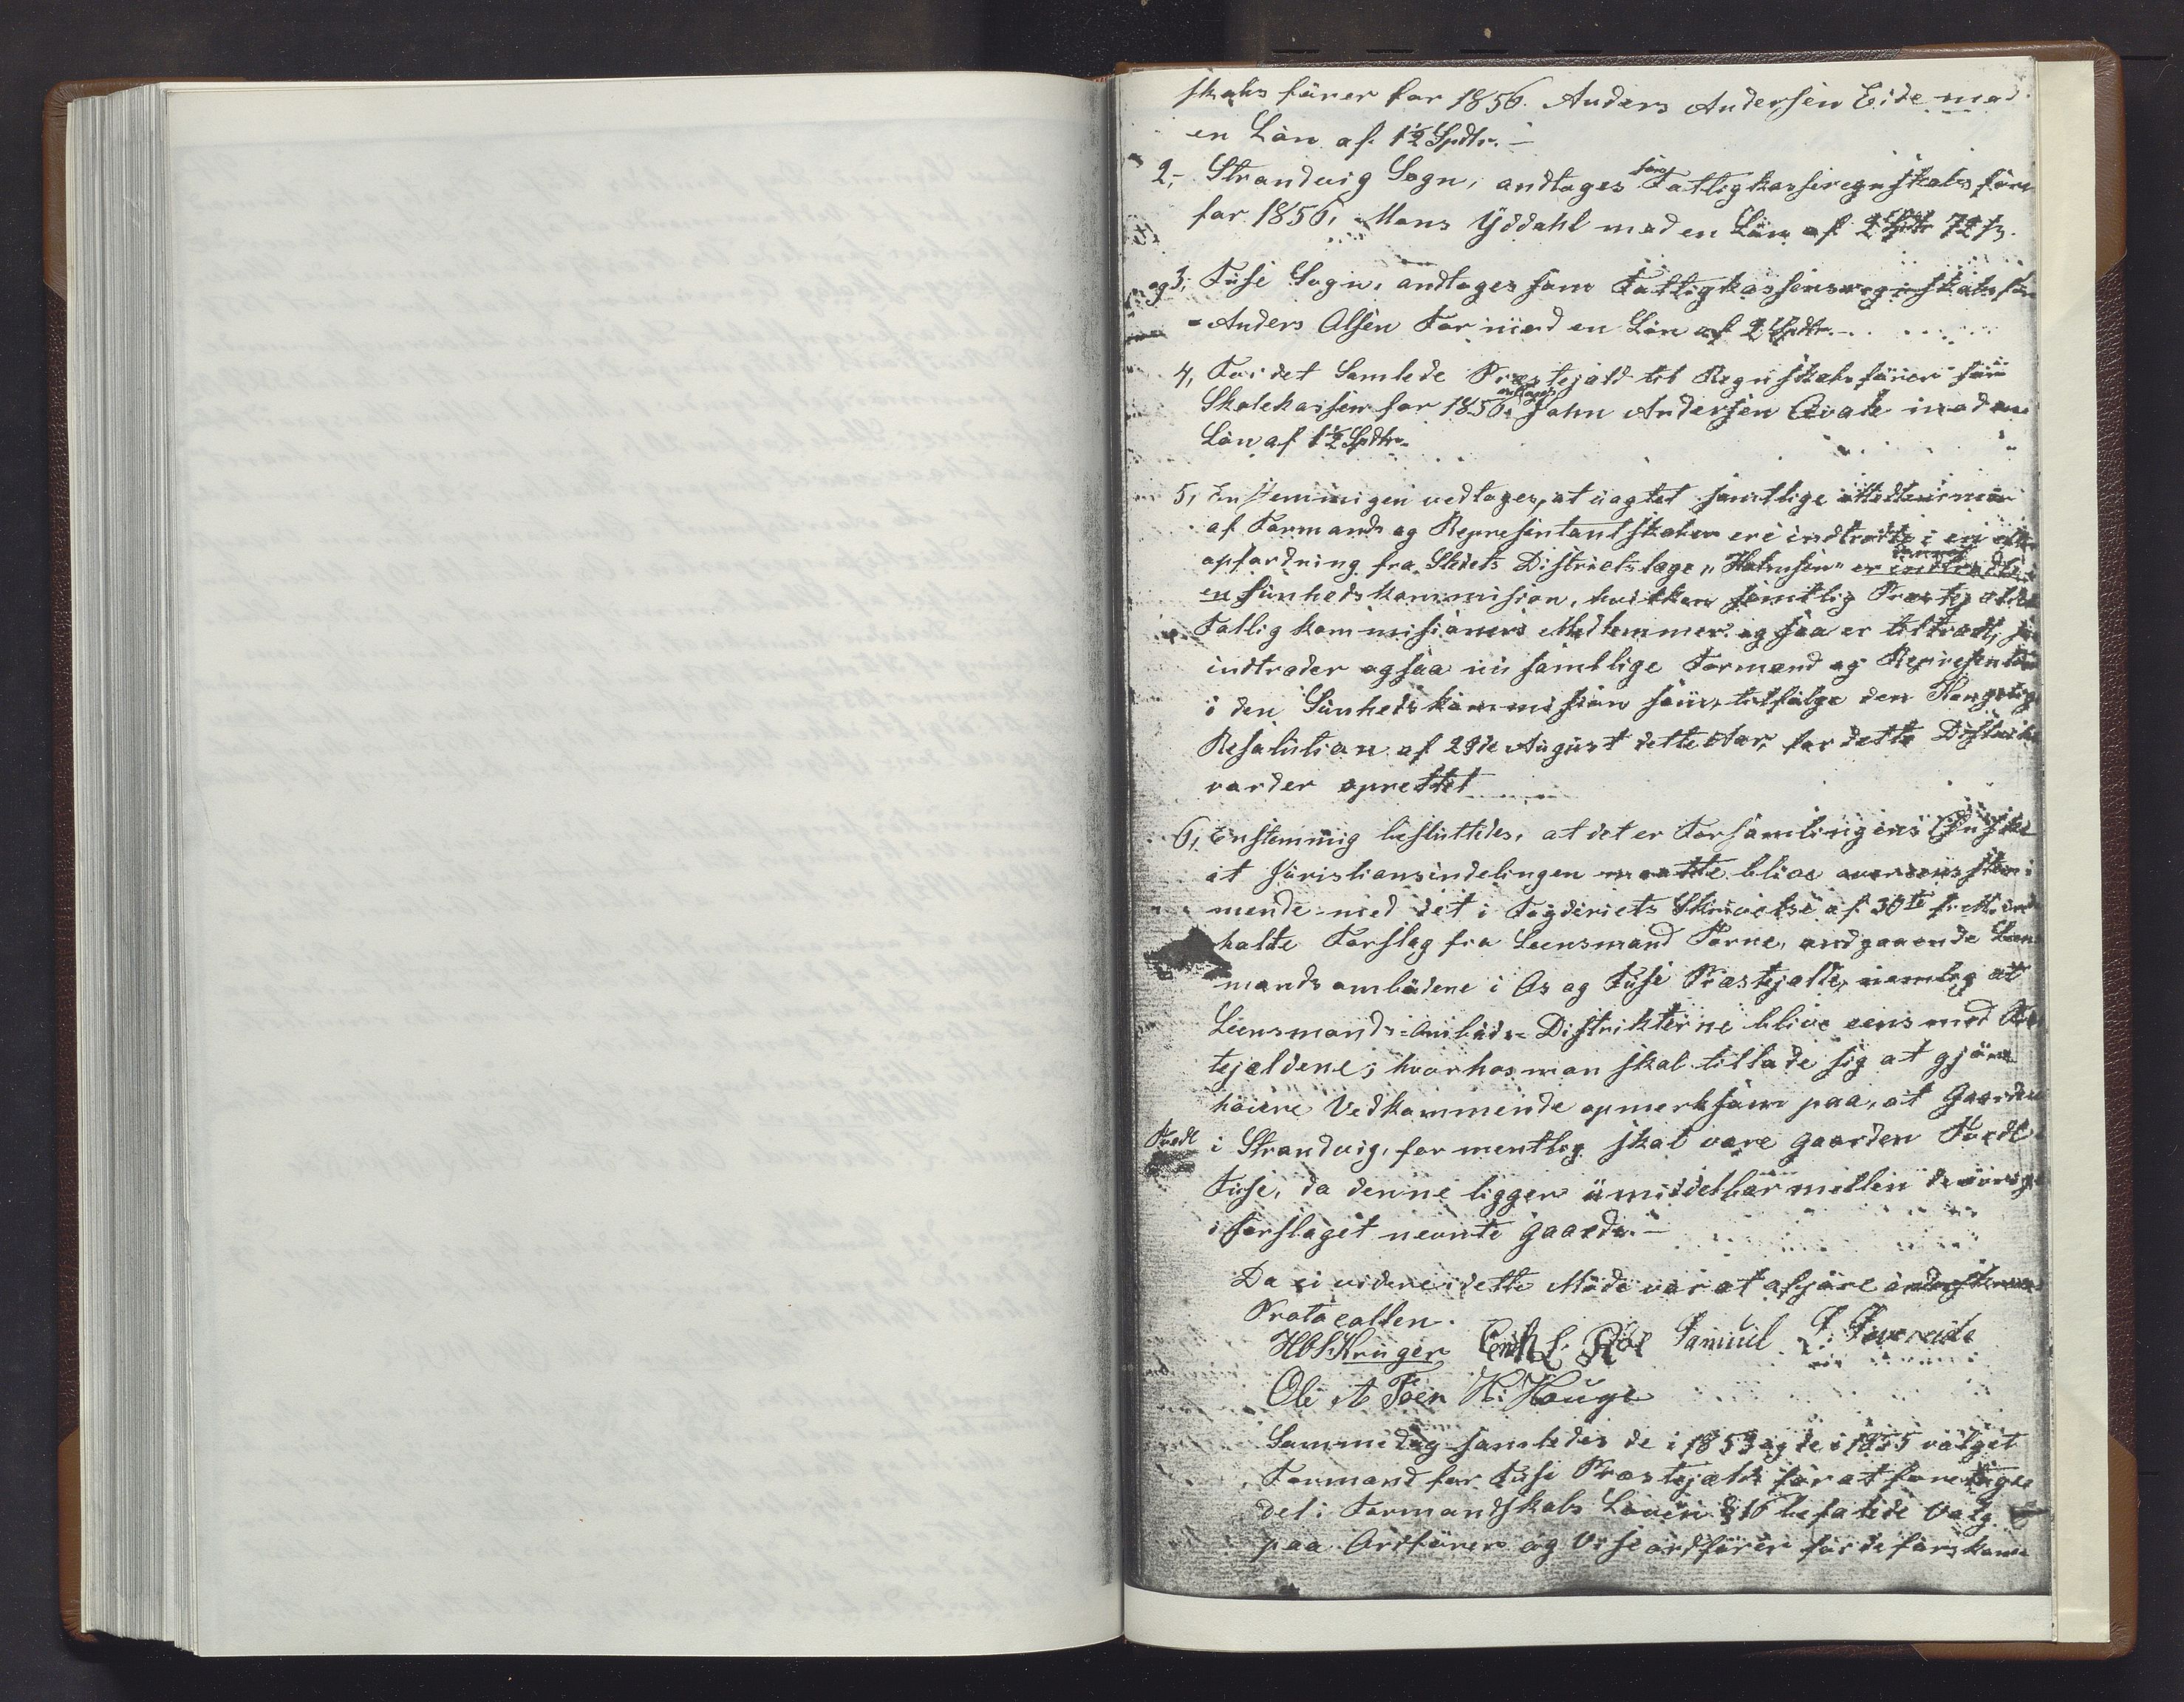 skabsfürer for 1856. Anders Andersen Eide med
en Lön af 1½ Spdlr. —
2,- Strandvig Sogn, andtages som Fattigkasseregnskabsförer
for 1856, Mons Yddahl med en Lön af 2 Spdlr 72 ß.
og 3, Fuse Sogn, andtages som Fattigkassens regnskabsför
Anders Olsen Tor med en Lön af 2 Spdlr. —
4, For det Samlede Præstejeld til Regnskabsförer for
Skolekassen for 1856, antages John Andersen Qvale med en
Lön af 1½ Spdlr. —
5, Enstemmigen vedtages, at uagtet samtlige
af Formands og Representantskabern ere indtrædte i en efter
opfordring fra Stedets Districtslæge „Holmsen" dannet
en Sunhedskommision, hvilken samtlig Præstejeldets
Fattigkommisioners Medlemmer ogsaa er tiltraadt, saa
indtræder ogsaa nu samtlige Formænd og Representan
i den Sunhedskommission som, tilfølge den Kongelig
Resolution af 29de August dette Aar, for dette Distrikt
vorder oprettet
6, Enstemmig besluttedes, at det er Forsamlingens Önske
at Juristiansindelingen maatte blive overeensstem-
mende med det i Fogderiets Skrivelse af 30te f. M. inde
holte Forslag fra Leensmand Horne, andgaaende Leens
mandsombudene i Os og Fuse Præstejelde, nemlig at
Leensmands-Ombuds-Distrikterne blive eens med Præs
tejeldene; hvorhos man skal tillade sig at gjöre
höiere Vedkommende opmerksom paa, at Gaarden
Tvedt
i Strandvig, formentlig skal være Gaarden Tvedt i
Fuse, da denne ligger umiddelbar mellen de övrige
i Forslaget nevnte Gaarde. —
Da ei videre i dette Möde var at afgjöre
Protocollen.
HOS Krüger Samuel
Ole A Toen H: Hauge
Sammedag samledes de i 1853 og de i 1855 valget
Formænd for Fuse Præstejeld for at foretage
det i Formandskabs Loven § 16 befalede Valg
paa Ordförer og Viseordförer for de förskom